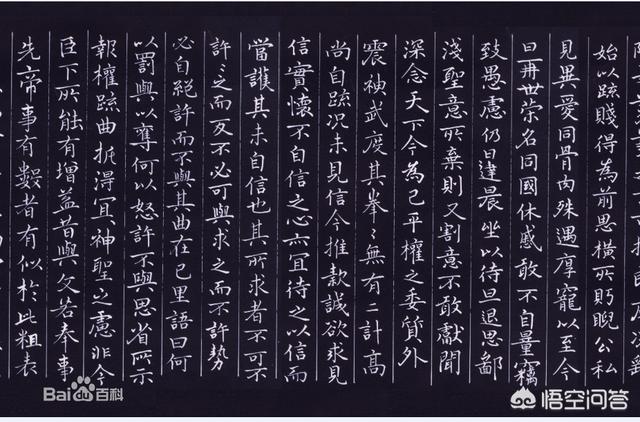 始以疏賤得為前恩橫所眄睨公私
見異愛同骨肉殊遇厚寵以至今
日再世榮名同國休慼敢不自量竊
致愚慮仍日達晨坐以待旦退思鄙
淺聖意所棄則又割意不敢獻聞
深念天下今為已平權之委質外
震神武度其拳々無有二計高
尚自疏況未見信今推款誠欲求見
信實懷不自信之心亦宜待之以信而
當護其未自信也其所求者不可不
許々之而反不必可與求之而不許勢
必自絕許而不與其曲在己里語曰何
以罰與以奪何以怒許不與思省所示
報權疏曲折得宜神聖之慮非今
臣下所能有增益昔與文若奉事
先帝事有數者有似於此粗表
Baidu百科
悟空问答